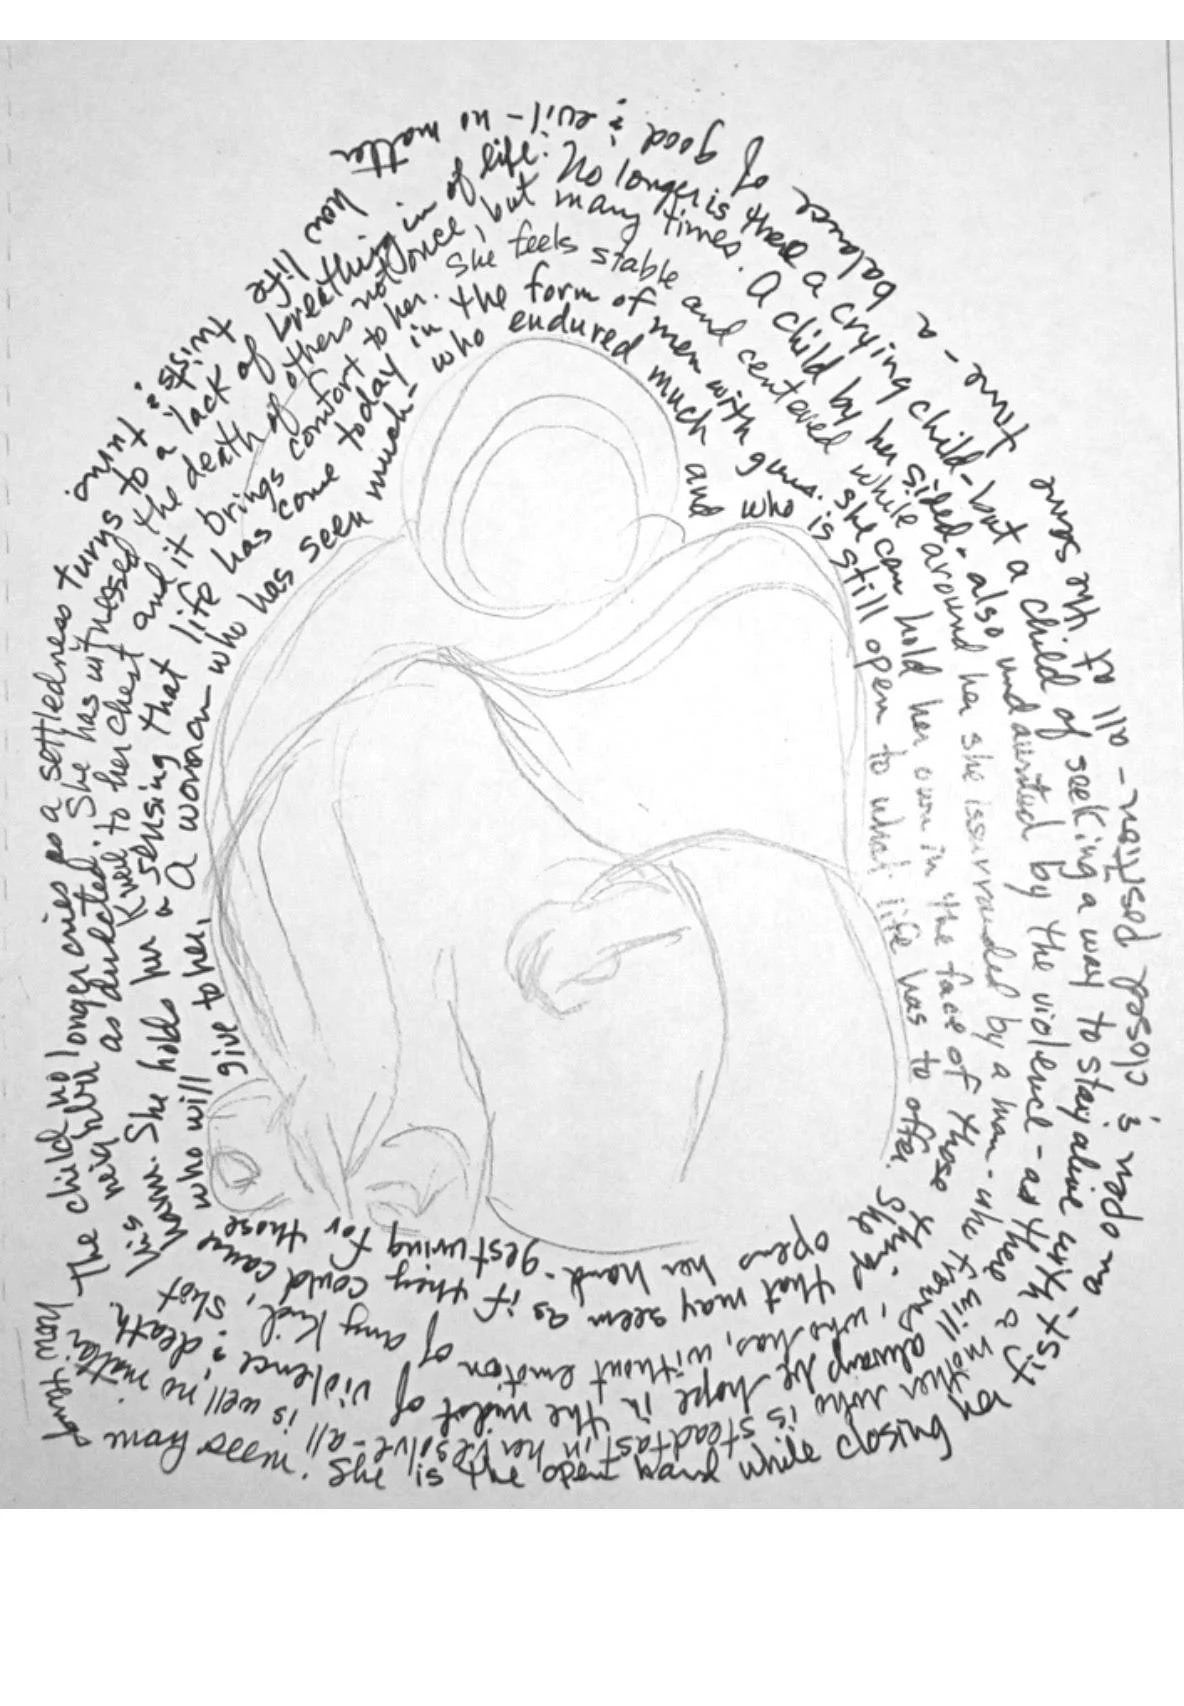 A woman who has seen much - who endured much and who is still open to what life has to offer. She opens her hand - gesturing for those
who will give to her, a sensing that life has come today in the form of men with guns. She can hold her own in the face of those things that may seem as if they could cause
harm. She holds her Knees to her chest and it brings comfort to her. She feels stable and centered while around her she is surrounded by a man - who frowns, who has, without emotion of any kind, shot
his neighbor as. She has witnessed the death of others not once, but many times. A child by her sided - also by the violence - as there will always be hope in the midst of violence & death
The child no longer cries as a settledness turns to a lack of breathing in of life. No longer is there a crying child - but a child of seeking a way to stay alive with a mother who is steadfast in her resolve - all is well, no matter
how from seem. She is the open hand while closing her fist, - an open & closed position - all at the same time - a balance of good & evil - no matter how life twists & turns